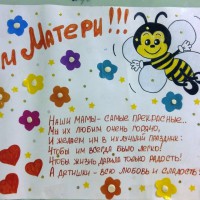 м Матери!!!
Наши мамы - самые прекрасные..
Мы их любим очень
И желаем им в их лучший праздник:
Чтобы им всегда было легко!
Чтобы жизнь давала только радость!
А детишки - всю любовь и сладость!